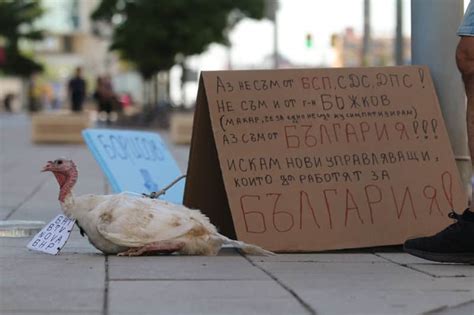 АЗ НЕ СЪМ ОТ БСП, СДС, ДПС!
НЕ СЪМ И ОТ Г-Н БЪЖКОВ
(МАКАР, ЧЕ ЗА ЕДНО СИМПАТИЗИРАМ)
АЗ СЪМ ОТ БЪЛГАРИЯ!!!
ИСКАМ НОВИ УПРАВЛЯВАЩИ,
КОИТО ДА РАБОТЯТ ЗА
БЪЛГАРИЯ!